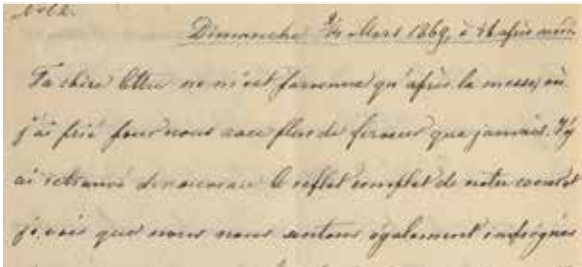 Dimanche 9/4 Mars 1869, à 4 h après midi
Ta chère lettre ne m'est parvenue qu'après la messe, où
j'ai prié pour nous avec plus de ferveur que jamais. J'y
ai retrouvé de nouveau le reflet complet de notre coeur et
je vois que nous nous sentons également